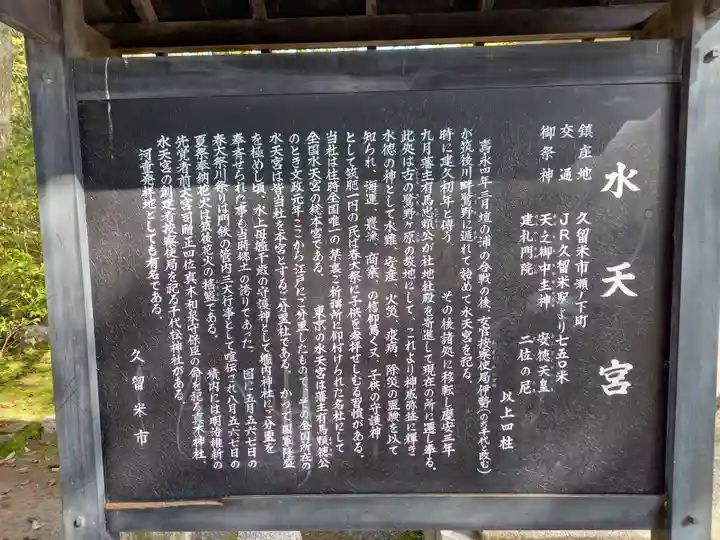 水天宮
鎮座地　久留米市瀬ノ下町
交通　JR久留米駅より七五〇米
御祭神　天之御中主神　安徳天皇
建礼門院　二位の尼
以上四柱
寿永四年三月壇の浦の合戦の後、官女按察使局伊勢(のち千代と改む)
が筑後川畔鷺野に遁れて始めて水天宮を祀る。
時に建久初年と傳う。　その後諸処に移転し慶安三年
九月藩主有馬忠頼公が社地社殿を寄進して現在の所に遷し奉る。
此処は古の鷺野ヶ原の築地にして、これより神威弥益に輝き
水徳の神として水難、安産、火災、疫病、除災の霊験を以て
知られ、海運、農漁、商業、の信仰篤く又、子供の守護神
として筑肥一円の民は春大祭に子供を参拝せしむる習慣がある。
当社は往時全国唯一の禁裏ご祈祷所に仰付けられた名社にして
全国水天宮の総本宮である。　東京の水天宮は藩主有馬頼徳公
のとき文政元年ここから江戸にご分里したもので、その全国所在の
水天宮は皆当社を本宮とするご分里社である。　かつて国軍隆盛
を極めし頃、水上母艦千歳の守護神として艦内神社にご分里を
奉斎せられた事も当時郷土の誇りであった。　因に五月五六七日の
春大祭川祭りは門鉄の管内三大行事として喧伝され八月五六七日の
夏祭奉納花火は筑後花火の精髄である。　境内には明治維新の
先覚者贈大宮司贈正四位真木和泉守保臣の命を祀る真木神社、
水天宮の創建者按察使局を祀る千代松神社がある。
河童発祥地としても有名である。
久留米市